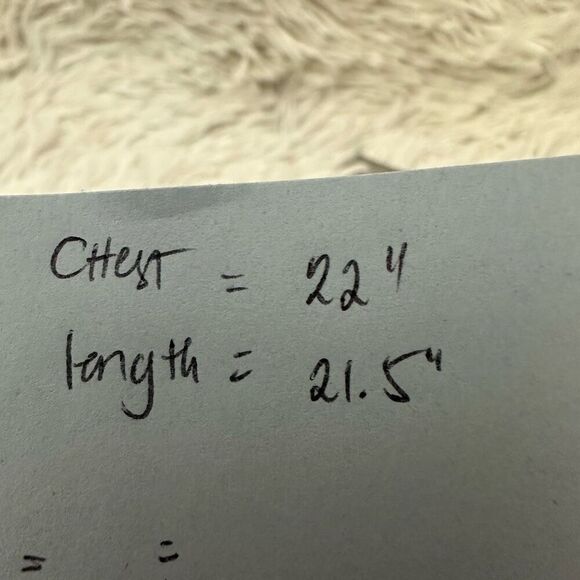 CHest = 22"
length = 21.5"
= =